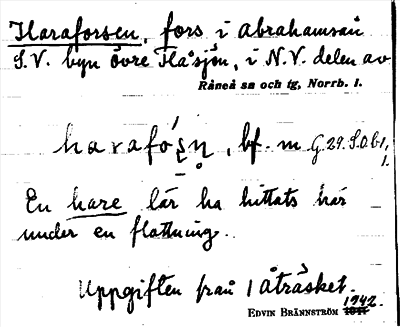 Haraforsen, fors i Abrahamsån
S.V. byn Övre Flåsjön, i N.V. delen av
Råneå sn och tg, Norrb. l.
harafó̱ṣṇ̥, bf. m G. 29. S.Ob1,1.
En hare lär ha hittats här
under en flottning.
Uppgiften från 1 Åträsket.
1942.
EDVIN BRÄNNSTRÖM